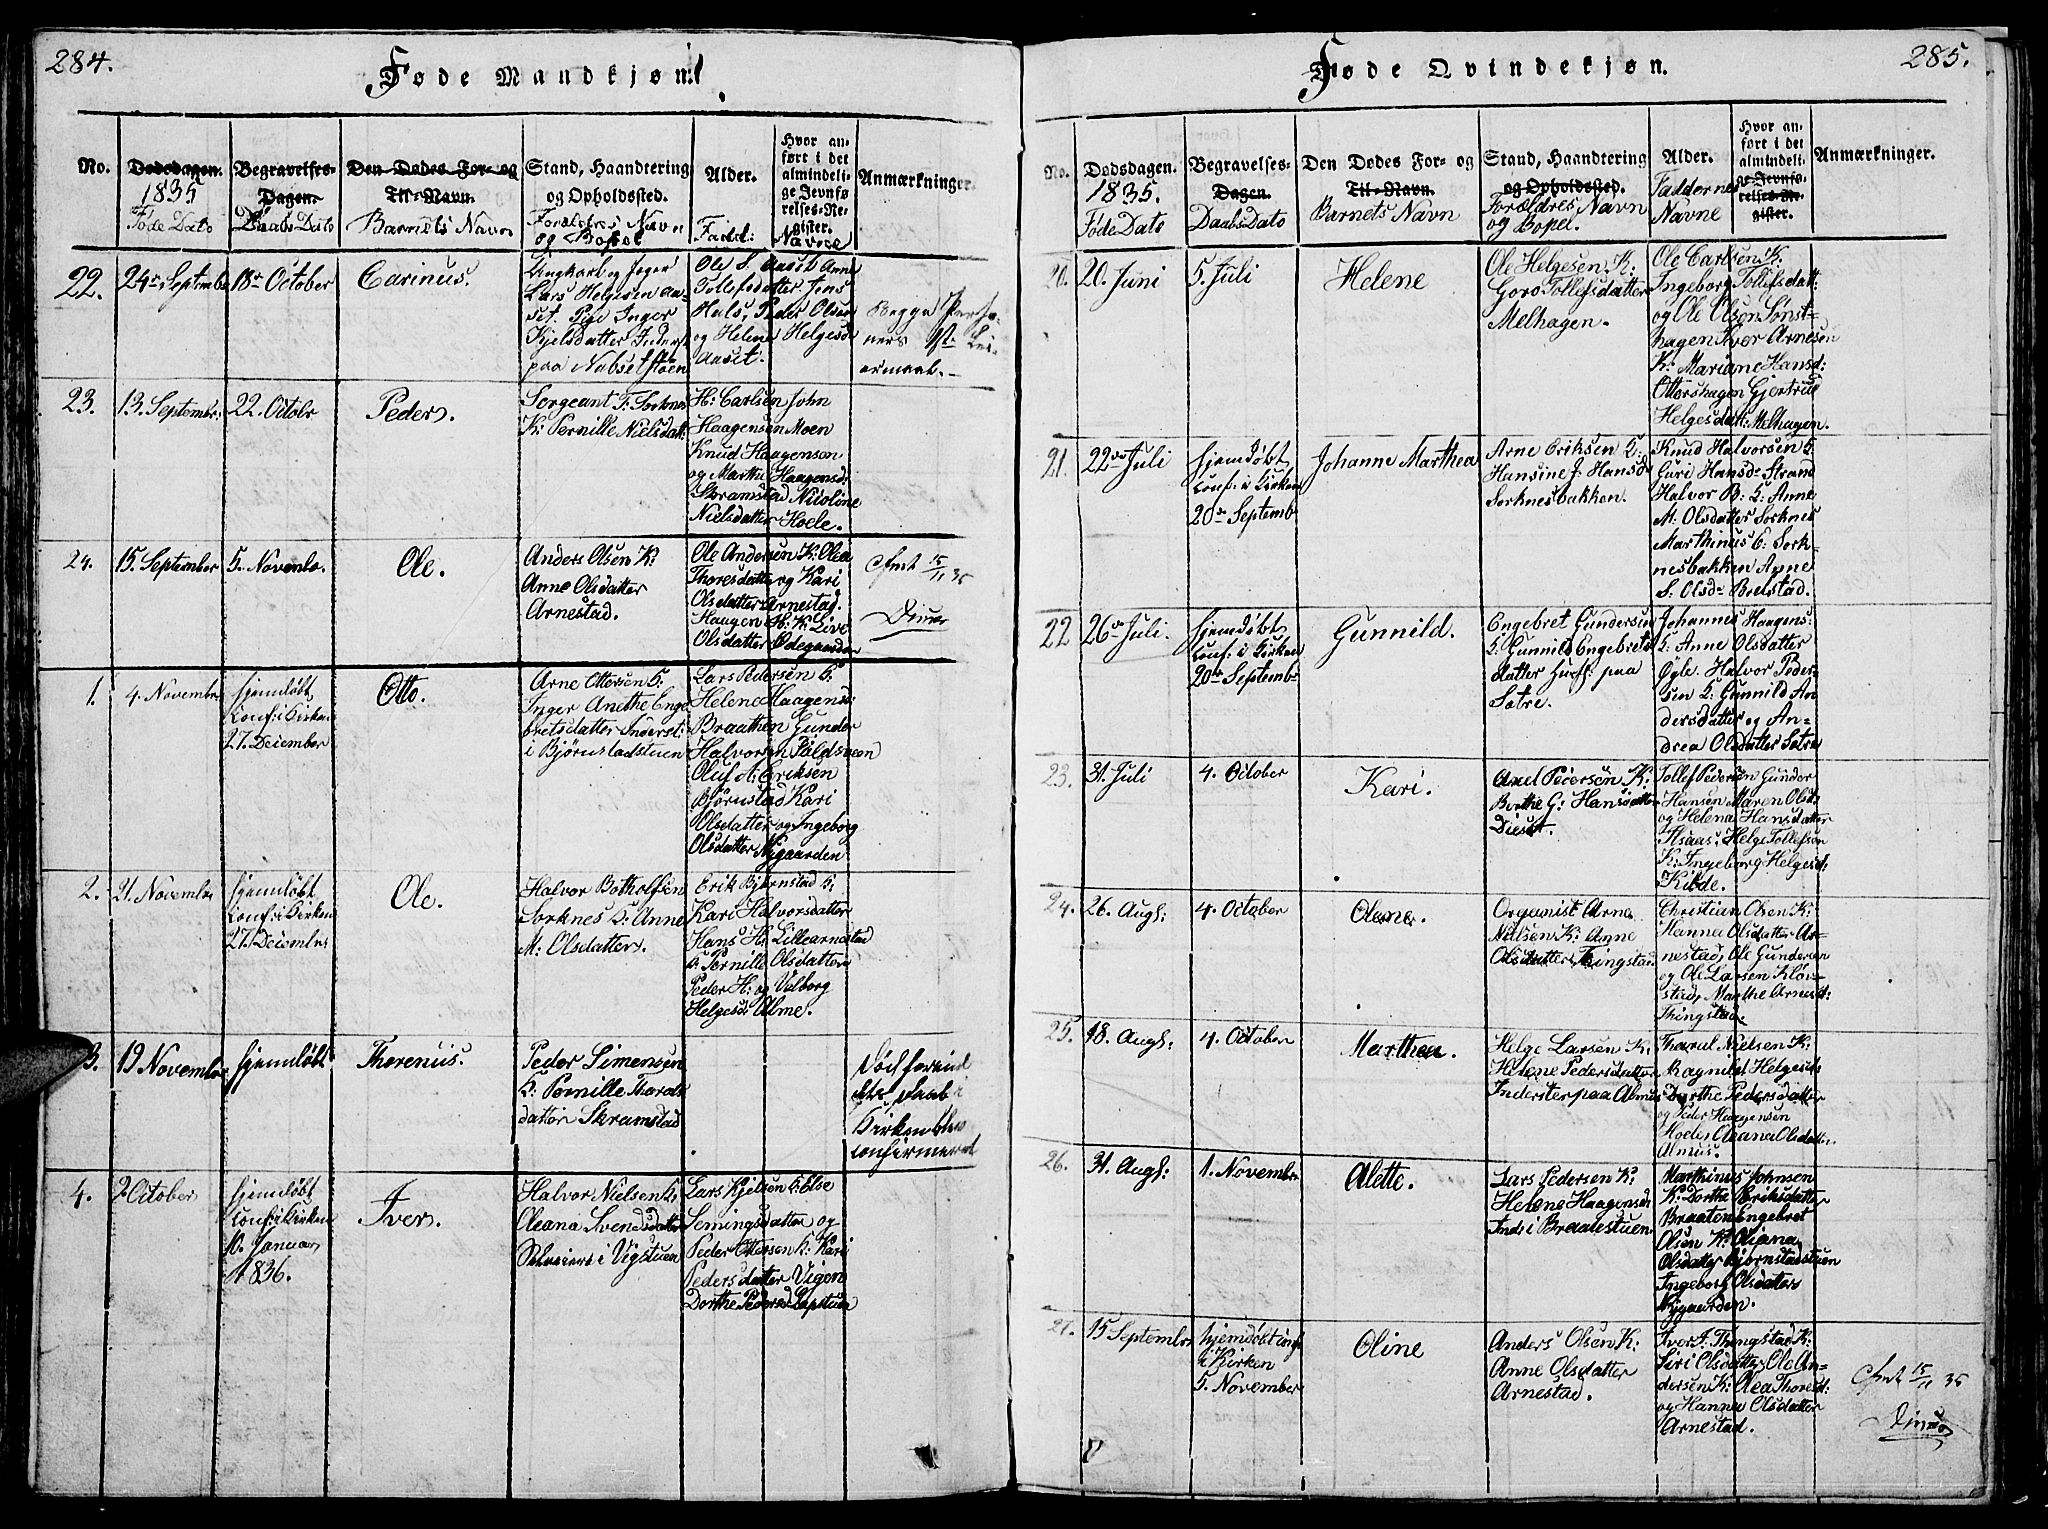 284.
Føde Mandkjøn
No.
Dødsdagen.
1835
Føde Dato
Begravelses-
Dagen.
Daabs Dato
Den Dødes For- og
Til-Navn.
Barnets Navn
Stand, Haandtering
og Opholdssted.
Forældres Navn
og Bopel
Alder.
Fadd:
Hvor an-
ført i det
almindeli-
ge Jevnfø
relses-Re-
gister.
Navne
Anmærkninger.
22.
24de Septembr
18de October
Carinus.
Ungkarl og Jæger
Lars Helgesen Aa-
set. Pige Inger
Kjelsdatter Inders.
paa Nabsetstøen
Ole S. Aaset Anne
Tollefsdatter Jens
Huls, Peder Olsen
og Helene Helgesd
Aaset.
Begge
23.
13. Septembr:
22. Octobr
Peder.
Sergeant T: Sorknes
K: Pernille Nielsdatt:
H: Carlsen John
Haagensen Moen
Knud Haagensen
og Marthe Haagensd:
Skramstad Nicoline
Nielsdatter Hoele.
24.
15. September
5. Novembr.
Ole.
Anders Olsen K:
Anne Olsdatter
Arnestad.
Ole Andersen K: Olea
Thoresdatter og Kari
Olsdatter Arnestad.
Haagen H: K: Live
Olsdatter Ødegaarden
15/11 35
1.
4. Novembr
hjemdøbt
conf: i Kirken
27. December
Otto.
Arne Ottersen K:
Inger Anethe Enge
bretsdatter Inderst
i Bjørnstadstuen
Lars Pedersen K:
Helene Haagensd:
Braathen Gunder
Halvorsen
Oluf A: Eriksen
Bjørnstad Kari
Olsdatter og Ingeborg
Olsdatter Nygaarden
2.
21. Novembr
hjemdøbt
conf: i Kirken
27. Decembr
Ole.
Halvor Botholfsen
Sorknes K: Anne
M: Olsdatter.
Erik Bjørnstad K:
Kari Halvorsdatter
Hans H: Lillearnestad
K: Pernille Olsdatter
Peder H: og Valborg
Helgesd: Alme.
3.
19 Novembr
hjemdøbt
Thorenius.
Peder Simensen
K: Pernille Thords
datter Skramstad
Død forend
dets Daab i
Kirken blev
confirmeret
4.
2 October
hjemdøbt
conf: i Kirken
10. Januar
1836.
Iver.
Halvor Nielsen K:
Oleana Svendsdatter
i Vigstuen
Lars Kjelsen K: Else
Semingsdatter og
Peder Ottersen K: Kari
Pedersdatter Vigen
Dorthe Pedersd
285.
Føde Qvindekjøn.
No.
Dødsdagen.
1835.
Føde Dato
Begravelses-
Dagen.
Daabs Dato
Den Dødes For- og
Til-Navn.
Barnets Navn
Stand, Haandtering
og Opholdssted.
Forældres Navn
og Bopel.
Alder.
Faddernes
Navne
Hvor an-
ført i det
almindeli-
ge Jevnfø-
relses-Re-
gister.
Anmærkninger.
20.
20. Juni
5. Juli
Helene
Ole Helgesen K:
Goro Tollefsdatter
Melhagen.
Ole Carlsen K.
Ingeborg Tollefsdatt:
og Ole Olsen Sønst-
hagen Iver Arnesen
K: Mariane Hansd:
Ottershagen Gjertrud
Helgesdatt: Melhagen.
21.
22de Juli
hjemdøbt
conf: i Kirken
20de Septemb
Johanne Marthea
Arne Eriksen K:
Hansine J: Hansd
Sorknesbakken.
Knud Halvorsen K
Guri Hansdr Strand
Halvor B: K: Anne
M: Olsdatter Sorknes
Marthinus E: Sork-
nesbakken Anne
S: Olsdr Bredstad.
22
26de Juli.
hjemdøbt
conf: i Kirken
20de Septembr
Gunnild.
Engebret Gundersen
K: Gunnild Engebrets
datter Huusf: paa
Sætre.
Johannes Haagens:
K: Anne Olsdatter
Øgle. Halvor Peder-
sen K: Gunnild An
dersdatter og An-
drea Olsdatter Sætre
23.
31. Juli
4. October
Kari.
Axel Pedersen K:
Berthe G: Hansdatter
Dieset.
Tollef Pedersen Gunder
Hansen Maren Olsd:
og Helena Hansdatter
Aasaas, Helge Tollefsen
K: Ingeborg Helgesd:
Kilde.
24.
26. Augs:
4. October
Olene.
Organist Arne
Nielsen K: Anne
Olsdatter Tingstad
Christian Olsen K:
Hanna Olsdatter Ar-
nestad, Ole Gundersen
og Ole Larsen Kløv-
stad, Marthe Arnesd:
Thingstad.
25.
18. Augs:
4. October
Marthea.
Helge Larsen K:
Helene Pedersdatter
Inderster paa Almus
Tharul Nielsen K:
Ragnild Helgesd:
Dorthe Pedersdatter
og Peder Haagensen
Hoele, Oleana Olsdatter
Almus.
26.
31. Augs:
1. Novembr
Alette.
Lars Pedersen K:
Helene Haagensen
Inds: i Braatestuen
Marthinus Johnsen
K: Dorthe Eriksdatter
Braaten Engebret
Olsen K: Oliana
Olsdatter Bjørnstadstuen
Ingeborg Olsdatter
Nygaarden.
27.
15 Septembr
hjemdøbt conf:
i Kirken
5. November
Oline
Anders Olsen K:
Anne Olsdatter
Arnestad.
Iver I. Thingstad K:
Siri Olsdatter, Ole An-
dersen K: Olea Thoresd:
og Hanna Olsdatter
Arnestad.
15/11 35